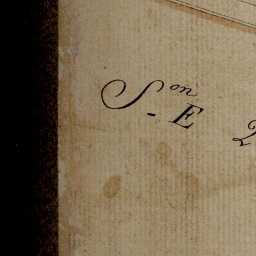 S.on E 2